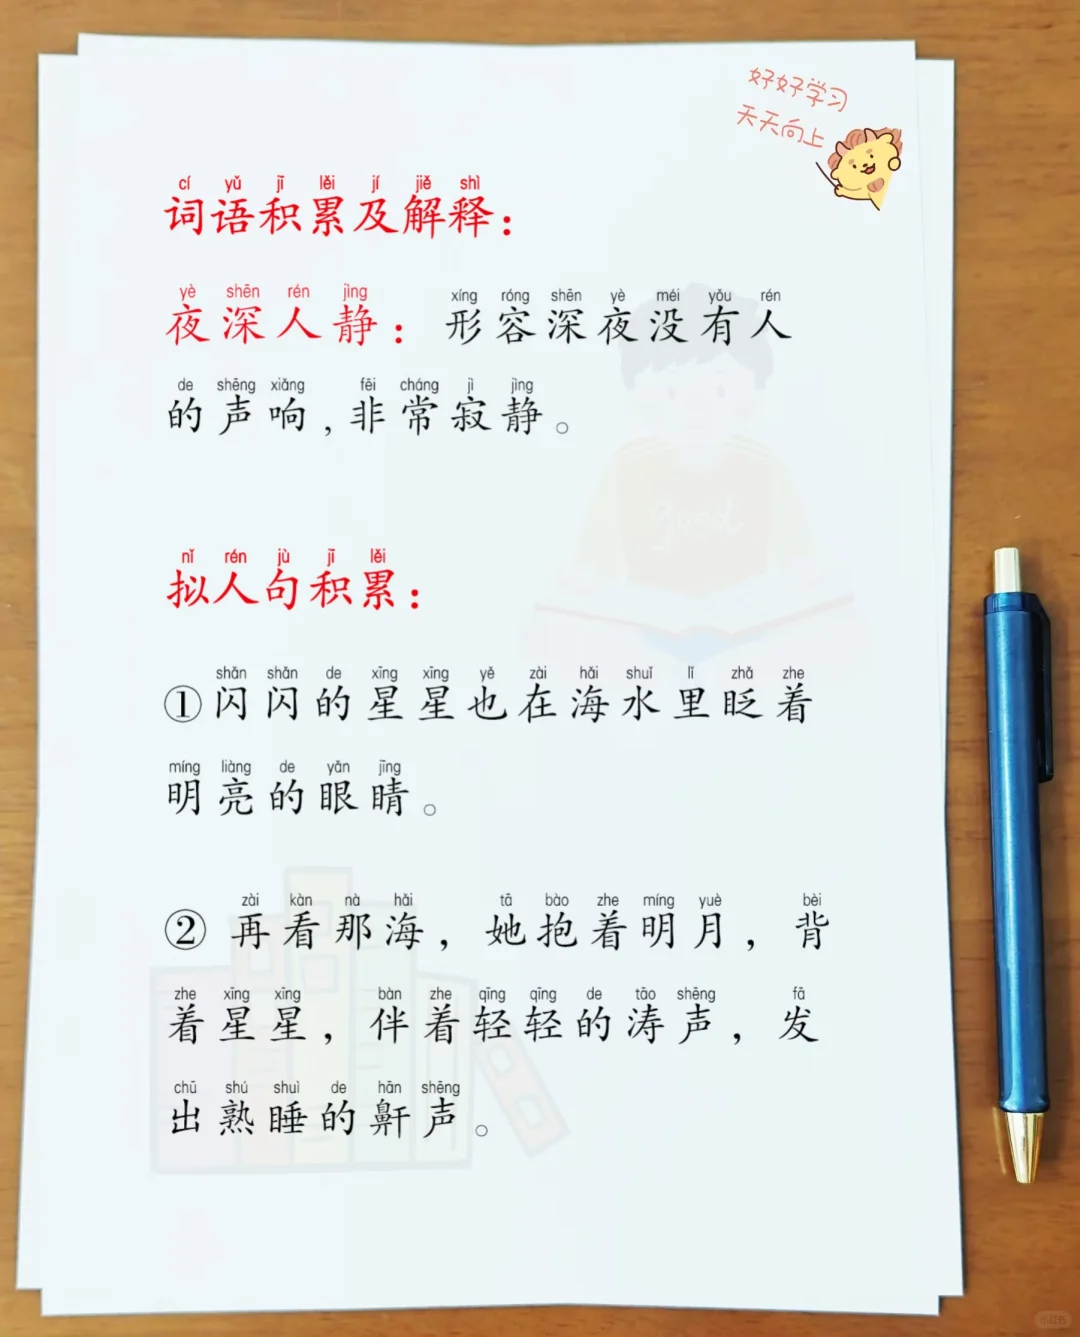 好好学习
天天向上
cí yǔ jī lěi jí jiě shì
词语积累及解释：
yè shēn rén jìng xíng róng shēn yè méi yǒu rén
夜深人静：形容深夜没有人
de shēng xiǎng fēi cháng jì jìng
的声响，非常寂静。
nǐ rén jù jī lěi
拟人句积累：
shǎn shǎn de xīng xīng yě zài hǎi shuǐ lǐ zhǎ zhe
①闪闪的星星也在海水里眨着
míng liàng de yǎn jīng
明亮的眼睛。
zài kàn nà hǎi tā bào zhe míng yuè bèi
②再看那海，她抱着明月，背
zhe xīng xīng bàn zhe qīng qīng de tāo shēng fā
着星星，伴着轻轻的涛声，发
chū shú shuì de hān shēng
出熟睡的鼾声。
Good
小红书